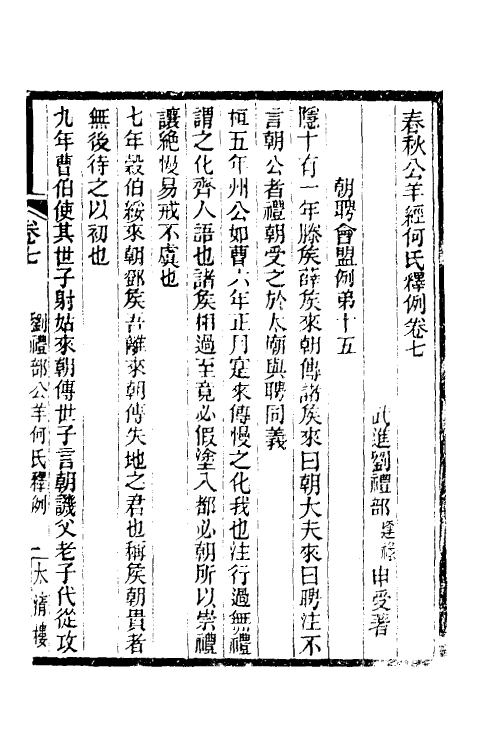 春秋公羊經何氏釋例卷七
武進劉禮部逢祿申受著
朝聘會盟例弟十五
隱十有一年滕矦薛矦來朝傳諸矦來曰朝大夫來曰聘注不
言朝公者禮朝受之於太廟與聘同義
桓五年州公如曹六年正月寔來傳慢之化我也注行過無禮
謂之化齊人語也諸矦相過至竟必假塗入都必朝所以崇禮
讓絕慢易戒不虞也
七年穀伯綏來朝鄧矦吾離來朝傳失地之君也稱矦朝貴者
無後待之以初也
九年曹伯使其世子射姑來朝傳世子言朝譏父老子代從攻
卷七
劉禮部公羊何氏釋例
一太清樓